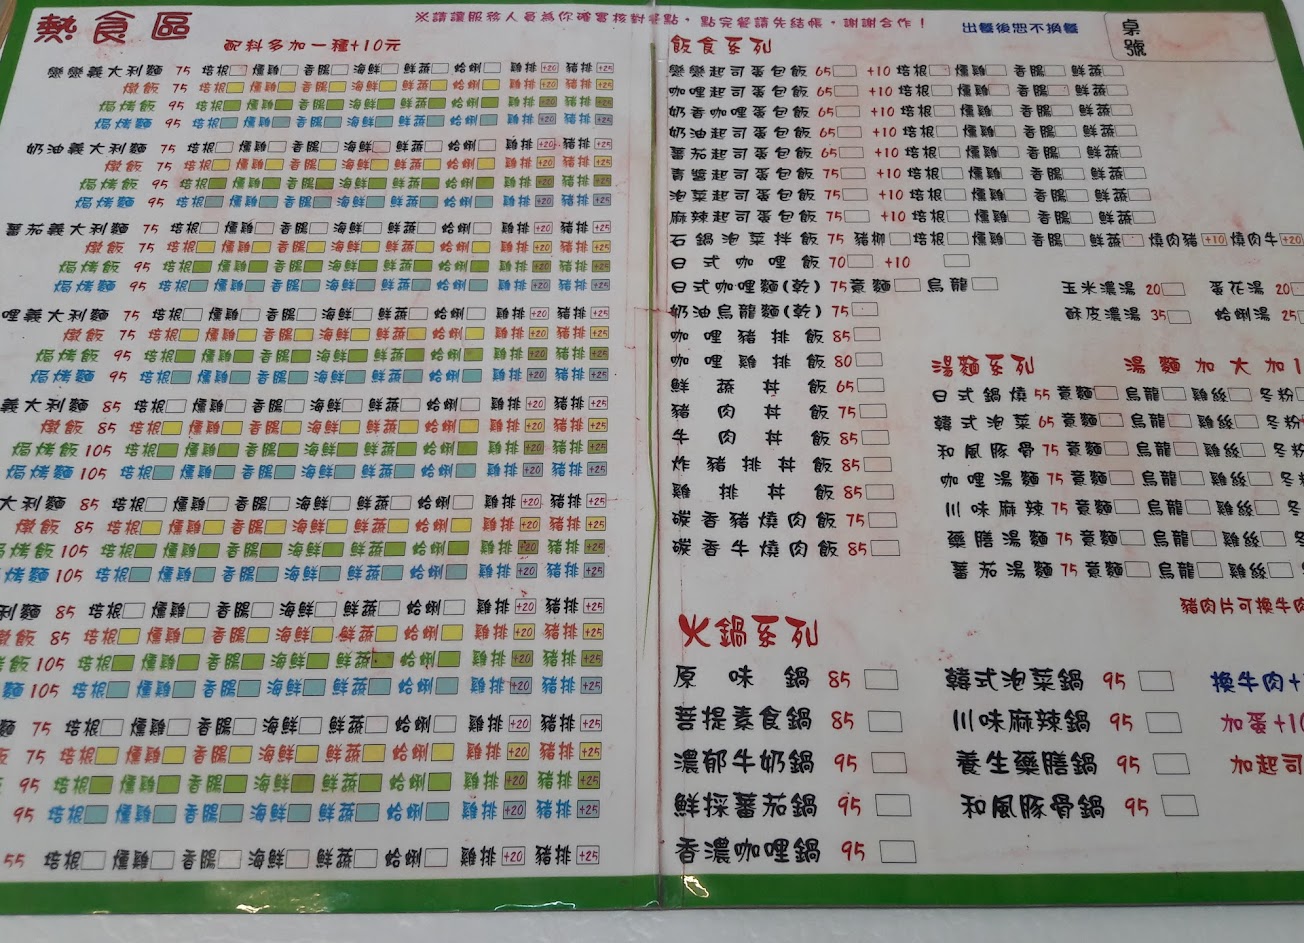 熱食區
配料多加一種+10元
※請讓服務人員為你確實核對餐點，點完餐請先結帳，謝謝合作！
出餐後恕不換餐
桌號
戀戀義大利麵 75 培根 燻雞 香腸 海鮮 鮮蔬 蛤蜊 雞排+20 豬排+25
燉飯 75 培根 燻雞 香腸 海鮮 鮮蔬 蛤蜊 雞排+20 豬排+25
焗烤飯 95 培根 燻雞 香腸 海鮮 鮮蔬 蛤蜊 雞排+20 豬排+25
焗烤麵 95 培根 燻雞 香腸 海鮮 鮮蔬 蛤蜊 雞排+20 豬排+25
奶油義大利麵 75 培根 燻雞 香腸 海鮮 鮮蔬 蛤蜊 雞排+20 豬排+25
燉飯 75 培根 燻雞 香腸 海鮮 鮮蔬 蛤蜊 雞排+20 豬排+25
焗烤飯 95 培根 燻雞 香腸 海鮮 鮮蔬 蛤蜊 雞排+20 豬排+25
焗烤麵 95 培根 燻雞 香腸 海鮮 鮮蔬 蛤蜊 雞排+20 豬排+25
蕃茄義大利麵 75 培根 燻雞 香腸 海鮮 鮮蔬 蛤蜊 雞排+20 豬排+25
燉飯 75 培根 燻雞 香腸 海鮮 鮮蔬 蛤蜊 雞排+20 豬排+25
焗烤飯 95 培根 燻雞 香腸 海鮮 鮮蔬 蛤蜊 雞排+20 豬排+25
焗烤麵 95 培根 燻雞 香腸 海鮮 鮮蔬 蛤蜊 雞排+20 豬排+25
哩義大利麵 75 培根 燻雞 香腸 海鮮 鮮蔬 蛤蜊 雞排+20 豬排+25
燉飯 75 培根 燻雞 香腸 海鮮 鮮蔬 蛤蜊 雞排+20 豬排+25
焗烤飯 95 培根 燻雞 香腸 海鮮 鮮蔬 蛤蜊 雞排+20 豬排+25
焗烤麵 95 培根 燻雞 香腸 海鮮 鮮蔬 蛤蜊 雞排+20 豬排+25
義大利麵 85 培根 燻雞 香腸 海鮮 鮮蔬 蛤蜊 雞排+20 豬排+25
燉飯 85 培根 燻雞 香腸 海鮮 鮮蔬 蛤蜊 雞排+20 豬排+25
焗烤飯 105 培根 燻雞 香腸 海鮮 鮮蔬 蛤蜊 雞排+20 豬排+25
焗烤麵 105 培根 燻雞 香腸 海鮮 鮮蔬 蛤蜊 雞排+20 豬排+25
大利麵 85 培根 燻雞 香腸 海鮮 鮮蔬 蛤蜊 雞排+20 豬排+25
燉飯 85 培根 燻雞 香腸 海鮮 鮮蔬 蛤蜊 雞排+20 豬排+25
焗烤飯 105 培根 燻雞 香腸 海鮮 鮮蔬 蛤蜊 雞排+20 豬排+25
烤麵 105 培根 燻雞 香腸 海鮮 鮮蔬 蛤蜊 雞排+20 豬排+25
利麵 85 培根 燻雞 香腸 海鮮 鮮蔬 蛤蜊 雞排+20 豬排+25
燉飯 85 培根 燻雞 香腸 海鮮 鮮蔬 蛤蜊 雞排+20 豬排+25
烤飯 105 培根 燻雞 香腸 海鮮 鮮蔬 蛤蜊 雞排+20 豬排+25
麵 105 培根 燻雞 香腸 海鮮 鮮蔬 蛤蜊 雞排+20 豬排+25
麵 75 培根 燻雞 香腸 海鮮 鮮蔬 蛤蜊 雞排+20 豬排+25
飯 75 培根 燻雞 香腸 海鮮 鮮蔬 蛤蜊 雞排+20 豬排+25
95 培根 燻雞 香腸 海鮮 鮮蔬 蛤蜊 雞排+20 豬排+25
95 培根 燻雞 香腸 海鮮 鮮蔬 蛤蜊 雞排+20 豬排+25
55 培根 燻雞 香腸 海鮮 鮮蔬 蛤蜊 雞排+20 豬排+25
飯食系列
戀戀起司蛋包飯 65 +10 培根 燻雞 香腸 鮮蔬
咖哩起司蛋包飯 65 +10 培根 燻雞 香腸 鮮蔬
奶香咖哩蛋包飯 65 +10 培根 燻雞 香腸 鮮蔬
奶油起司蛋包飯 65 +10 培根 燻雞 香腸 鮮蔬
蕃茄起司蛋包飯 65 +10 培根 燻雞 香腸 鮮蔬
青醬起司蛋包飯 75 +10 培根 燻雞 香腸 鮮蔬
泡菜起司蛋包飯 75 +10 培根 燻雞 香腸 鮮蔬
麻辣起司蛋包飯 75 +10 培根 燻雞 香腸 鮮蔬
石鍋泡菜拌飯 75 豬柳 培根 燻雞 香腸 鮮蔬 燒肉豬+10 燒肉牛+20
日式咖哩飯 70 +10
日式咖哩麵(乾) 75 意麵 烏龍
奶油烏龍麵(乾) 75
咖哩豬排飯 85
咖哩雞排飯 80
鮮蔬丼飯 65
豬肉丼飯 75
牛肉丼飯 85
炸豬排丼飯 85
雞排丼飯 85
碳香豬燒肉飯 75
碳香牛燒肉飯 85
玉米濃湯 20 蛋花湯 20
酥皮濃湯 35 蛤蜊湯 25
湯麵系列 湯麵加大加1
日式鍋燒 55 意麵 烏龍 雞絲 冬粉
韓式泡菜 65 意麵 烏龍 雞絲 冬粉
和風豚骨 75 意麵 烏龍 雞絲 冬
咖哩湯麵 75 意麵 烏龍 雞絲 冬
川味麻辣 75 意麵 烏龍 雞絲 冬
藥膳湯麵 75 意麵 烏龍 雞絲
蕃茄湯麵 75 意麵 烏龍 雞絲
豬肉片可換牛肉
火鍋系列
原味鍋 85 韓式泡菜鍋 95 換牛肉+
菩提素食鍋 85 川味麻辣鍋 95 加蛋+10
濃郁牛奶鍋 95 養生藥膳鍋 95 加起司
鮮採蕃茄鍋 95 和風豚骨鍋 95
香濃咖哩鍋 95